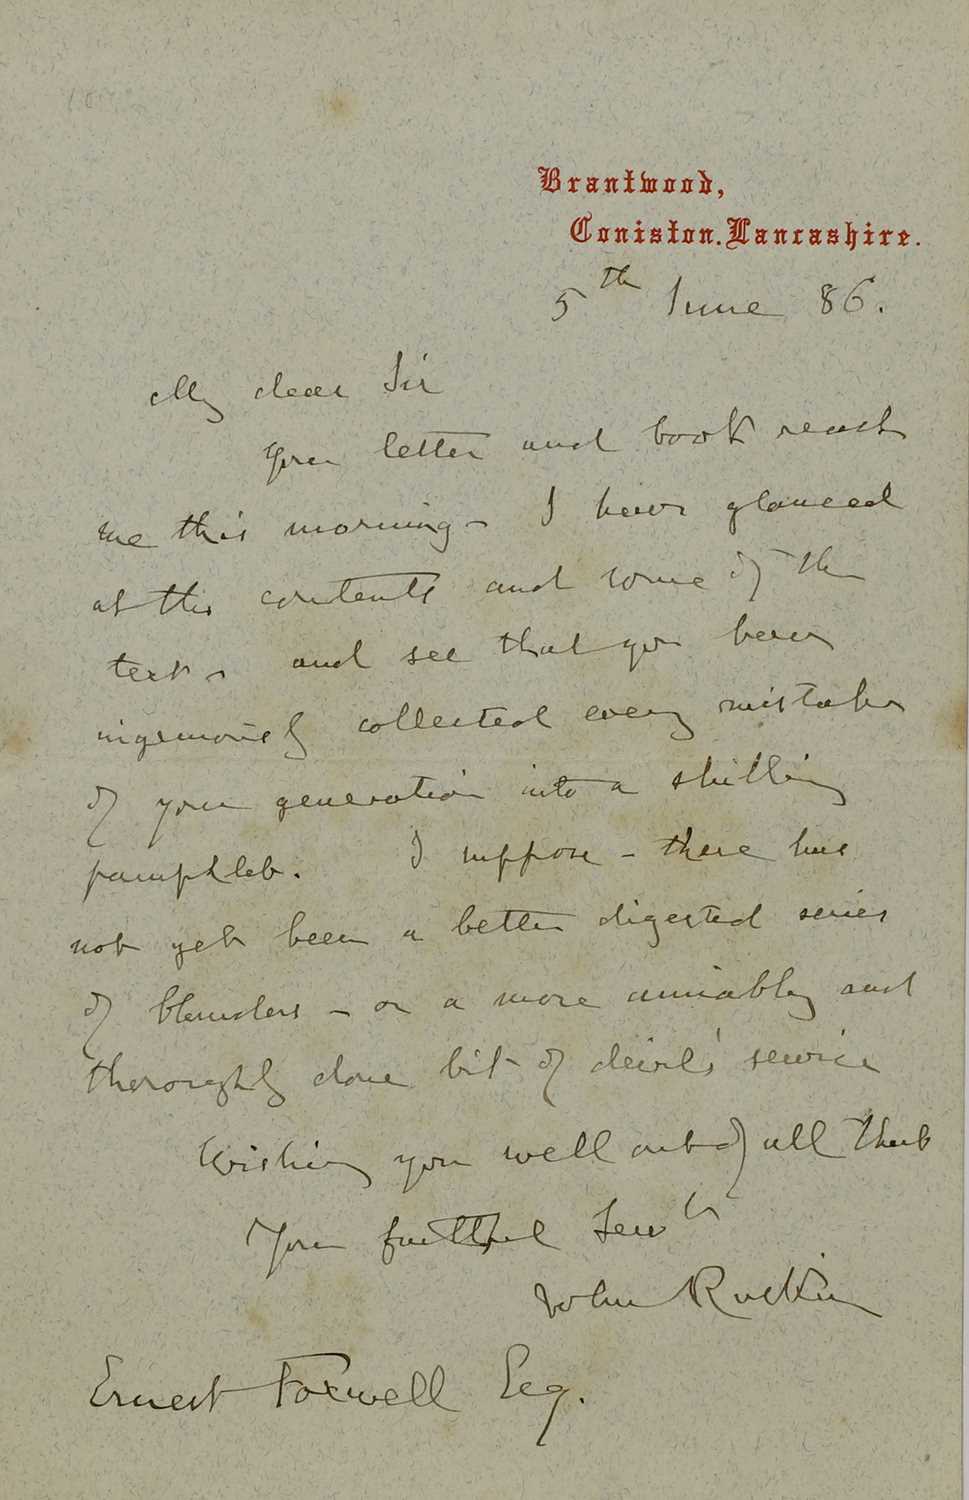 Brantwood,
Coniston. Lancashire.
5th June 86.
My dear Sir
Your letter and book reach
me this morning - I have glanced
at the contents and some of the
text - and see that you have
ingeniously collected every mistake
of your generation into a shilling
pamphlet. I suppose - there has
not yet been a better digested series
of blunders - or a more amiably and
thoroughly done bit of devil's service
Wishing you well out of all that
Your faithful Servt
John Ruskin
Ernest Foxwell Esq.